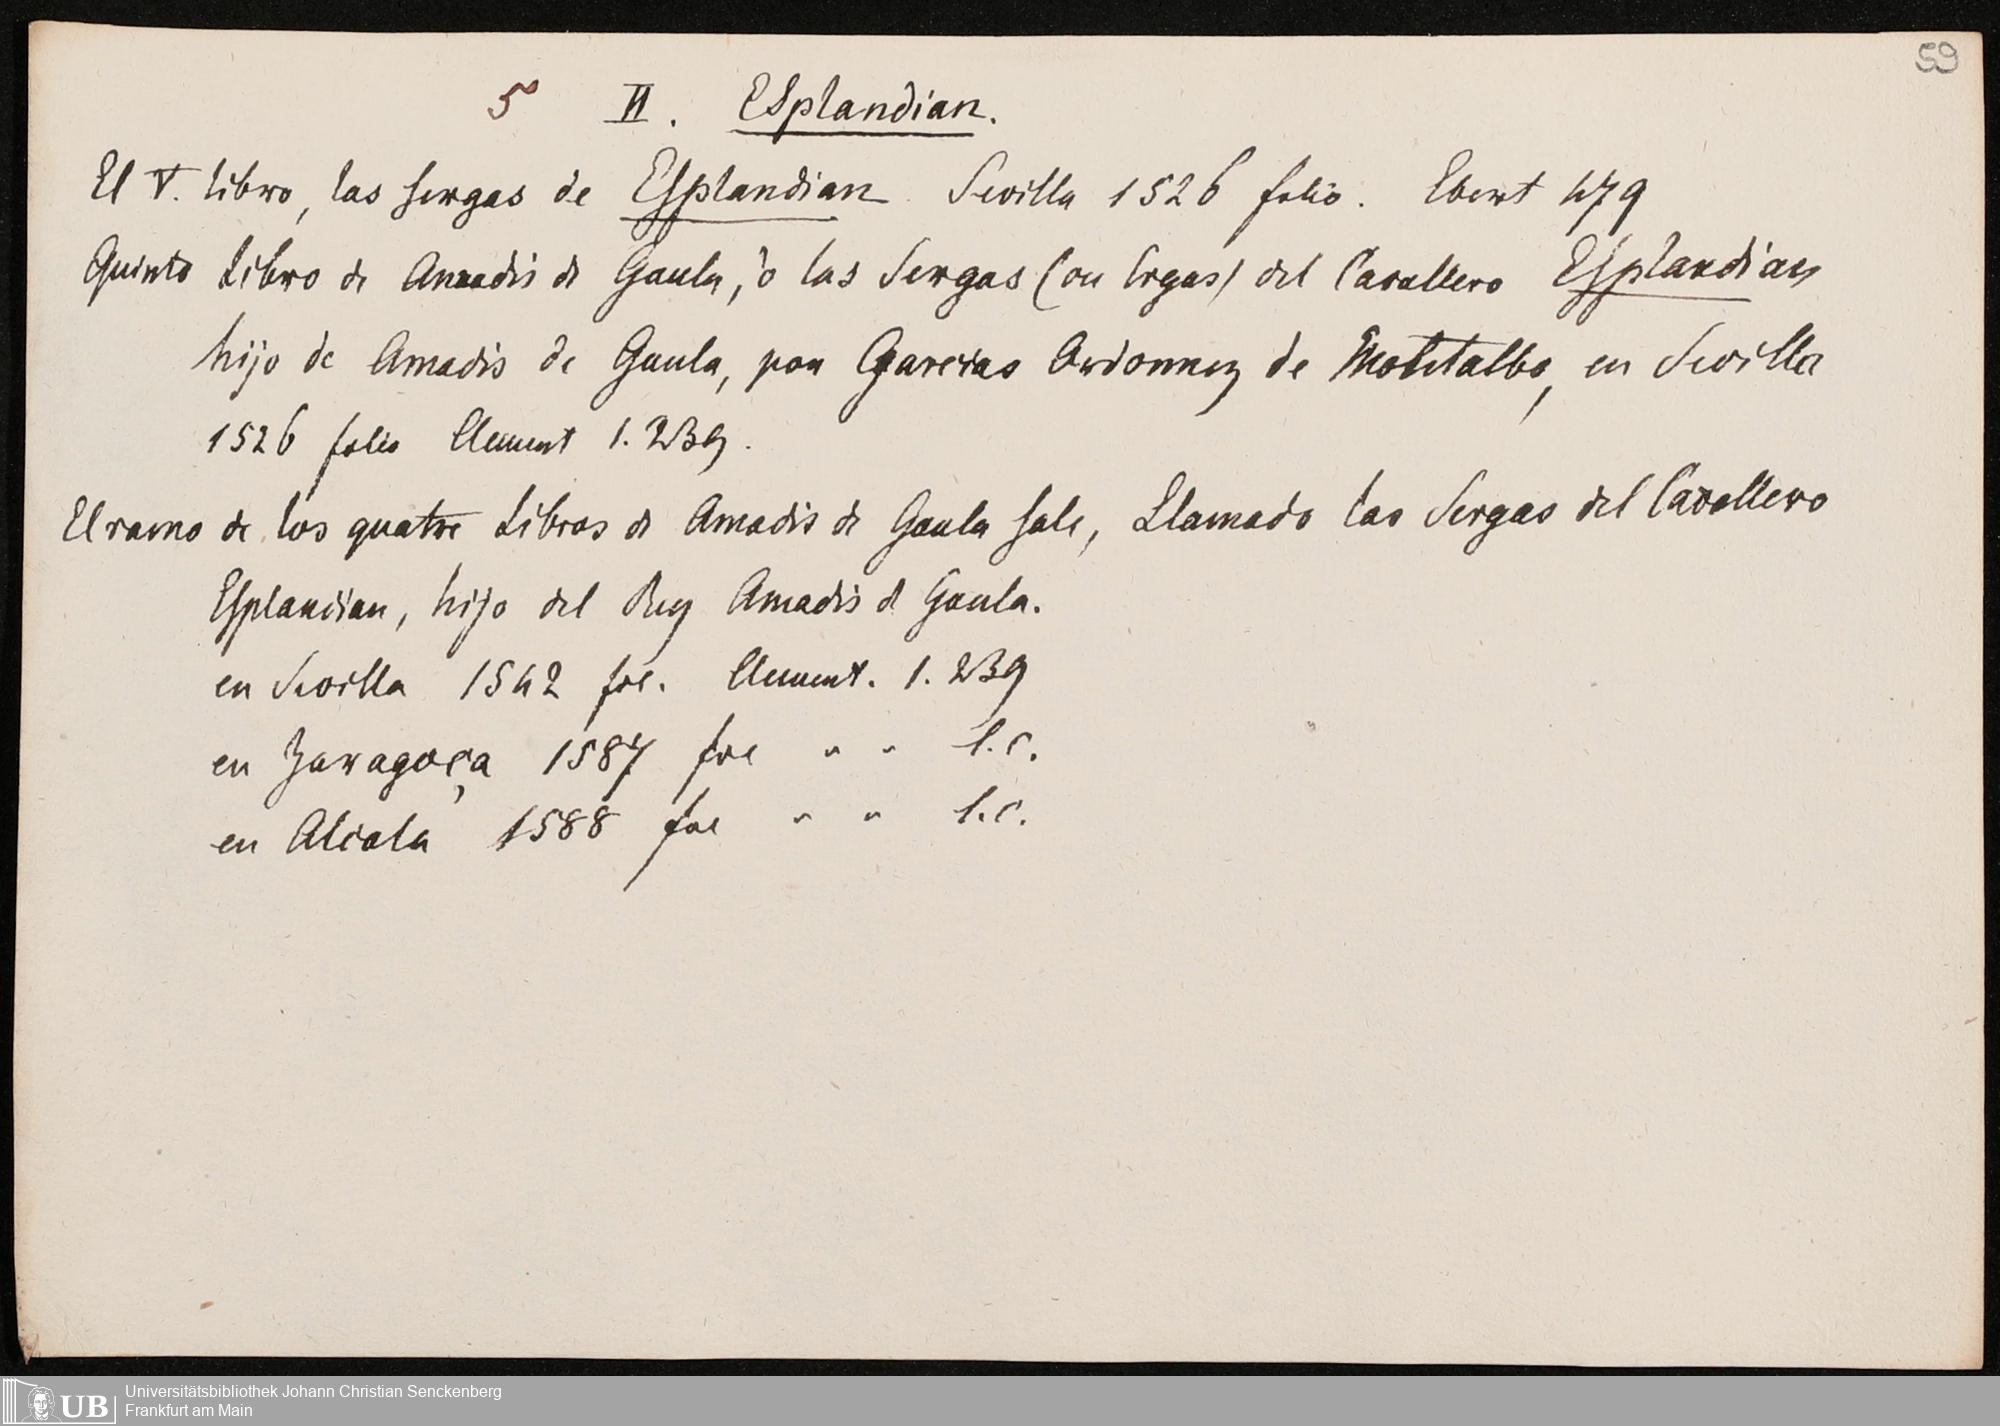 59
5 II. Esplandian.
El V. libro, las sergas de Esplandian Sevilla 1526 folio. Ebert 479
Quinto Libro de Amadis de Gaula, ò las Sergas (ou Ergas) del Cavallero Esplandian
hijo de Amadis de Gaula, por Garcias Ordonnez de Montalbo, en Sevilla
1526 folio Clement 1. 239.
El ramo de los quatre Libros de Amadis de Gaula sale, Llamado las Sergas del Cavallero
Esplandian, hijo del Rey Amadis d Gaula.
en Sevilla 1542 fol. Clement. 1. 239
en Zaragoça 1587 fol " " l.c.
en Alcala 1588 fol " " l.c.
UB Universitätsbibliothek Johann Christian Senckenberg
Frankfurt am Main